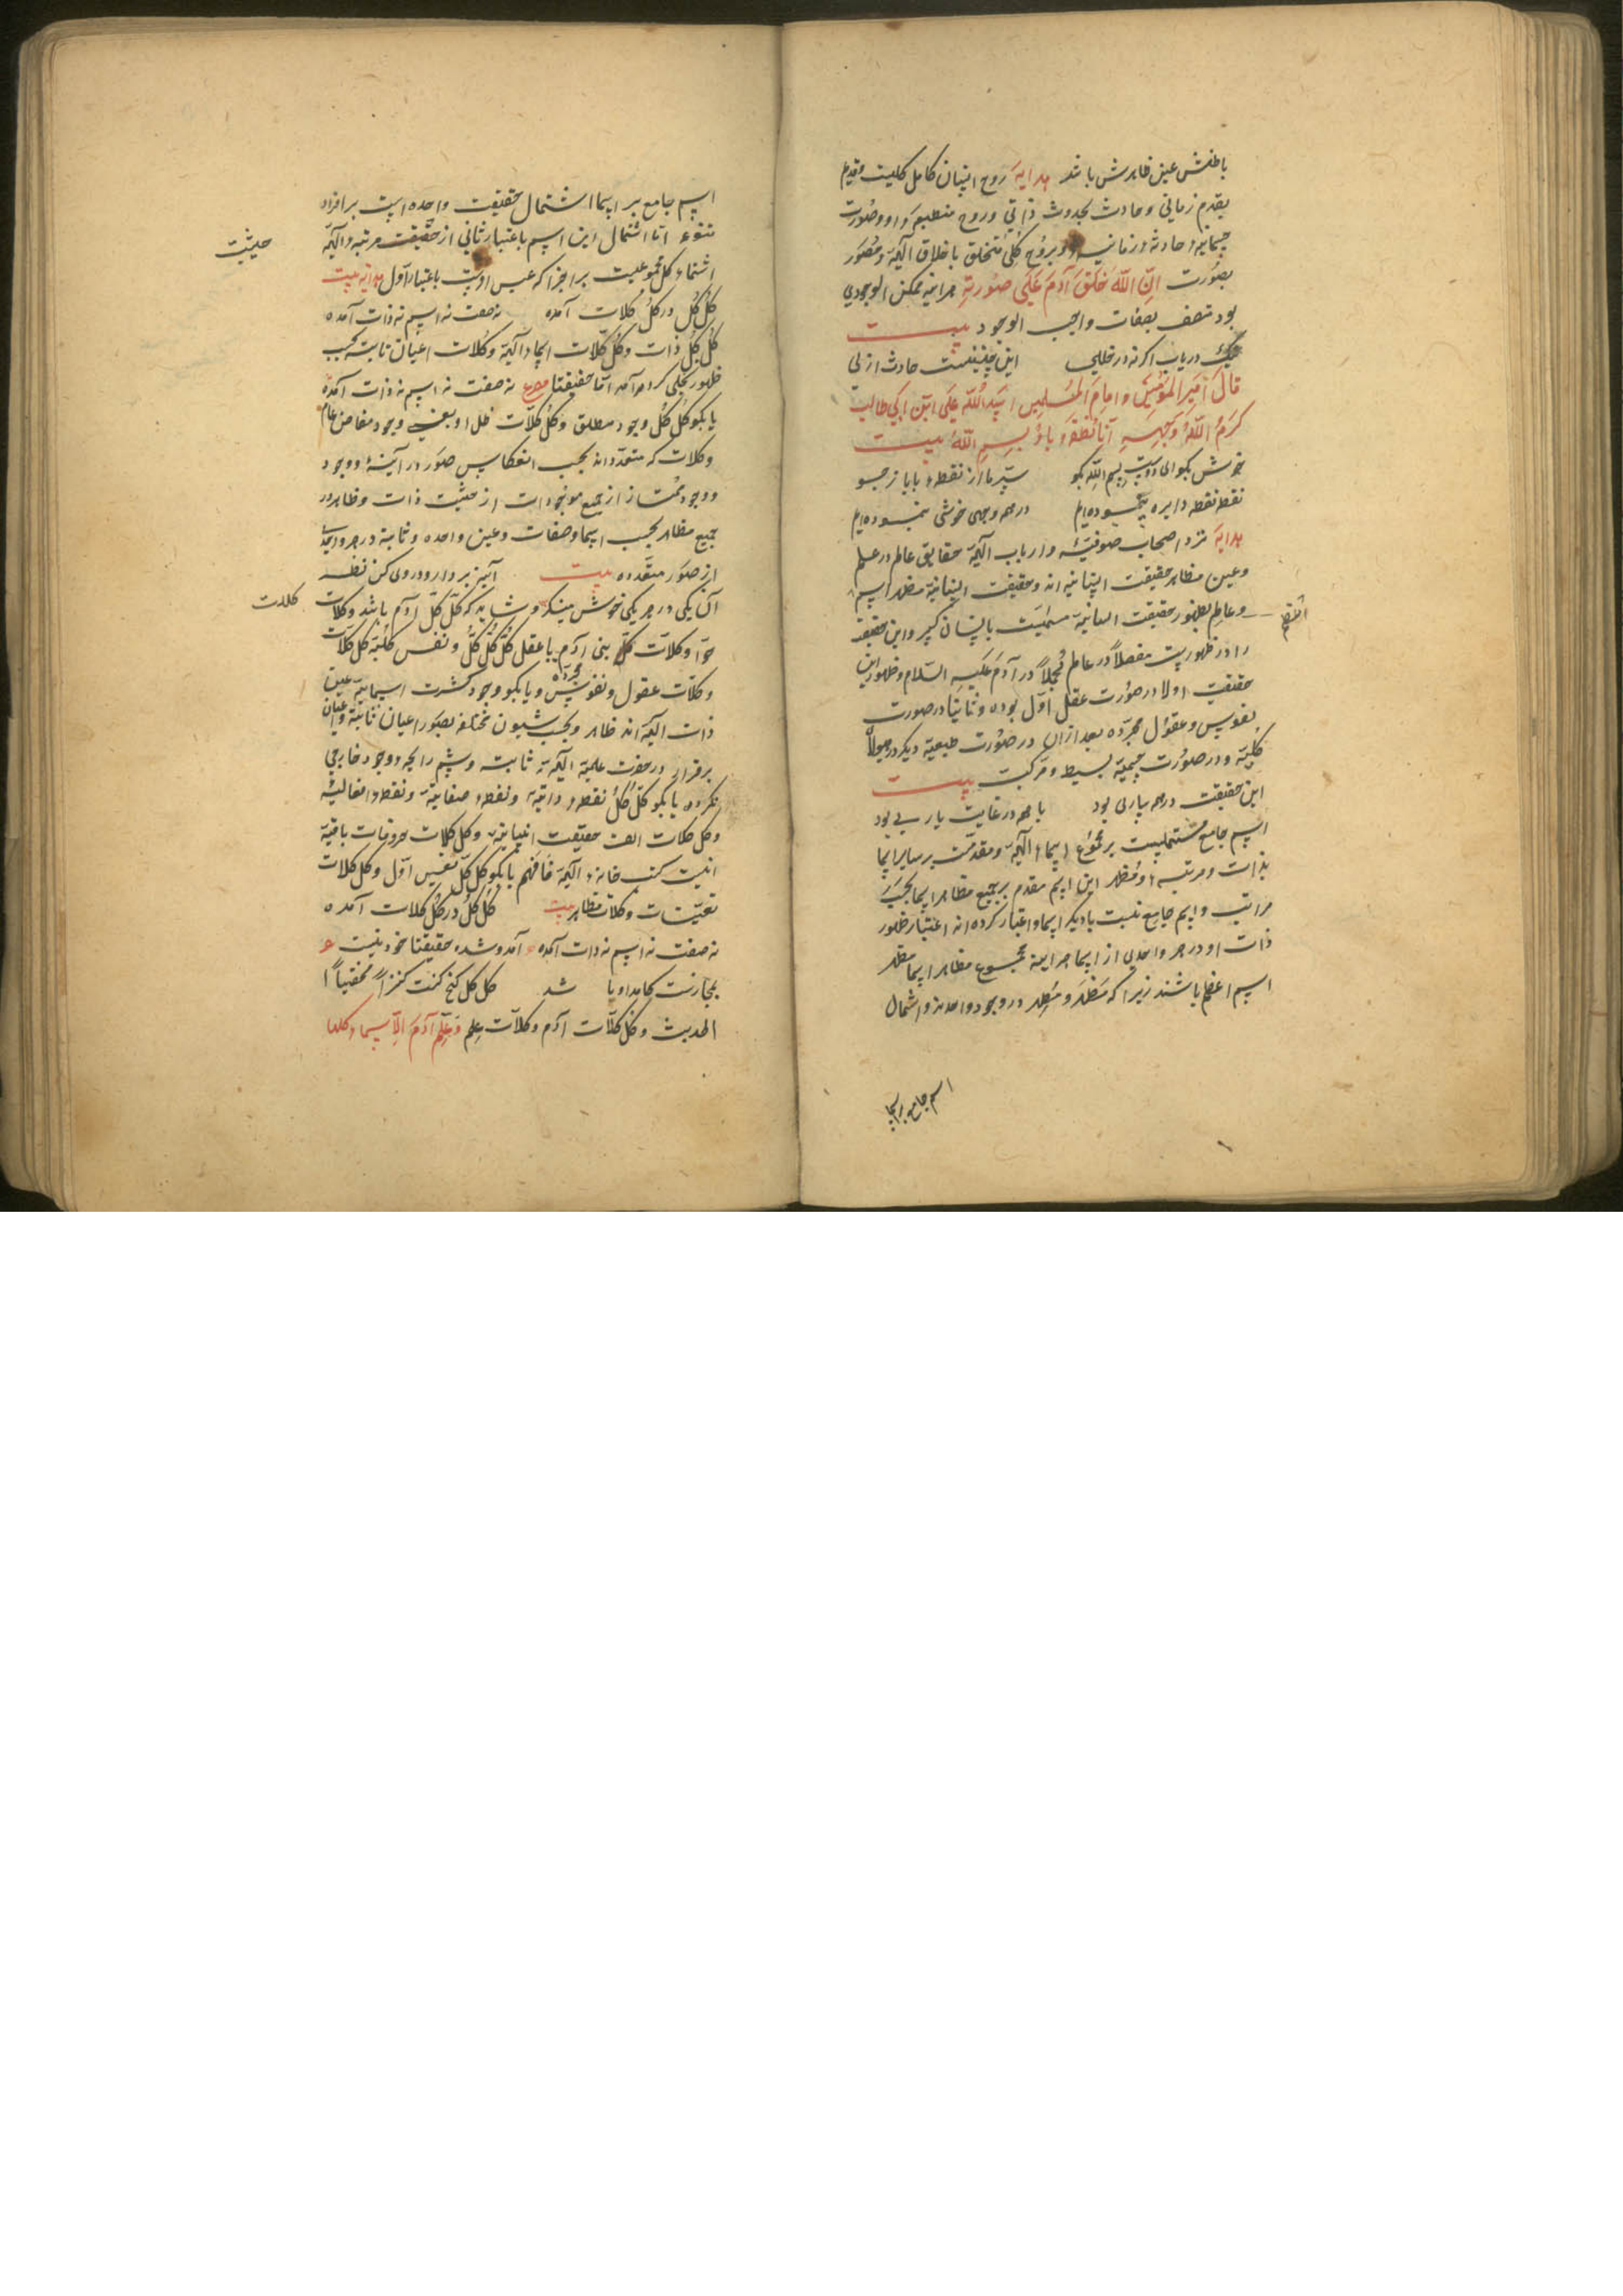 باطنش عین ظاهرش باشد هدایة روح انسان کامل کلیست و قدیم
بقدم زمانی و حادث بحدوث ذاتی و روح منطبعهٔ او و صورت
جسمانیهٔ حادثهٔ زمانیه او و بروح کلی متخلق باخلاق الهیه و مصور
بصورت انّ اللّه خَلَقَ آدَمَ عَلَی صُورَتِهِ هر آینه ممکن الوجودی
بود متصف بصفات واجب الوجود بیت
نیک دریاب اگر نه در خللی این چنینست حادث ازلی
قالَ اَمیرَ المُؤمِنینَ و امامَ المُسلمین اسد اللّه عَلی ابن ابی طالب
کَرَّمَ اللّهُ وَجهَهُ اَنَا نُقطَةُ باءِ بِسمِ اللّهِ بیت
خوش بگو ای دوست بسم اللّه بگو سرّ ما از نقطهٔ با باز جو
نقطه نقطه دایره پیموده‌ایم در همه وجهی خوشی بنموده‌ایم
هدایة نزد اصحاب صوفیه و ارباب الهیه حقایق عالم در علم
و عین مظاهر حقیقت انسانیه‌اند و حقیقت انسانیة مظهر اسم
و عالم بظهور حقیقت انسانیة مسمیست بانسان کبیر و این حقیقة
را در ظهوریست مفصلاً در عالم مجملاً در آدم عَلَیهِ السّلام و ظهور این
حقیقت اولا در صورت عقل اوّل بوده و ثانیا در صورت
نفوس و عقول مجرّده بعد ازان در صورت طبیعیة دیگر در هیولا
کلیّة و در صورت جسمیّة بسیط و مرکبت بیت
این حقیقت در همه ساری بود با همه در غایت یاری بود
اسم جامع مشتملیست بر مجموع اسماء الهیه و مقدمست بر سایر اسما
بذات و مرتبه و مظهر این اسم مقدم بر جمیع مظاهر اسما بحسب
مراتب و اسم جامع نسبت با دیگر اسما و اعتبار کرده‌اند اعتبار ظهور
ذات او در هر واحدی از اسما هر آینه مجموع مظاهر اسما مظهر
اسم اعظم باشند زیرا که مَظهَر و مُظهر در وجود واحدند و اشتمال
اسم جامع بر اسما
اسم جامع بر اسما اشتمال حقیقت واحده است بر افراد
متنوعه امّا اشتمال این اسم باعتبار ثانی از حقیقت مرتبهٔ الهیّه
حیثیت
اشتمال کل مجموعیست بر اجزا که عین اوست باعتبار اوّل هدایه بیت
کُلّ کُل در کُل کُلات آمده نه صفت نه اسم نه ذات آمده
کُل کُل ذات و کُل کُلات ایجاد الهیّه و کُلات اعیان ثابته بحسب
ظهور تجلی کرده آمد امّا حقیقتا مصرع نه صفت نه اسم نه ذات آمده
یا بگو کُل کُل وجود مطلق و کُل کُلات ظل او یعنی وجود مفاض عام
و کلات که متعدّداند بحسب انعکاس صور در آینهٔ وجود
و وجود مُمتاز از جمیع موجودات از حیثیت ذات و ظاهر در
جمیع مظاهر بحسب اسما و صفات و عین واحده و ثابتة در هر واحد
از صور متعدده بیت آینه بردار و در وی کن نظر
آن یکی در هر یکی خوش مینگر و شاید که کُل کُل آدم باشد و کلات
کلات
حوّا و کلات کُل بنی آدم یا عقل کُل کُل کُل و نفس کُلیّة کل کلات
و کلات عقول و نفوس مجرّده و یا بگو وجود کثرت اسمائیّة عین
ذات الهیّه‌اند ظاهر و بحسب شیون مختلفه بصور اعیان ثابتة و اعیان
برقرار در حضرت علمیّة الهیّة ثابت و شم رایحهٔ وجود خارجی
نکرده یا بگو کُل کُل نقطهٔ ذاتیّه و نقطهٔ صفاتیّه و نقطهٔ افعالیّه
و کل کلات الف حقیقت انسانیّه و کل کلات حروفات باقیة
انیست کتب خانهٔ الهیّه فافهم یا بگو کُل کُل نفس اوّل و کل کلات
تعیّنات و کلات مظاهر بیت کُل کُل در کُل کلات آمده
نه صفت نه اسم نه ذات آمده آمد و شد حقیقتا خود نیست ع
بمجازست کآمد او یا شد کل کل گنج کنت کنزاً مخفیاً
الحدیث و کل کلات آدم و کلات علم وَ عَلَّمَ آدَمَ الاَسماءَ کلها